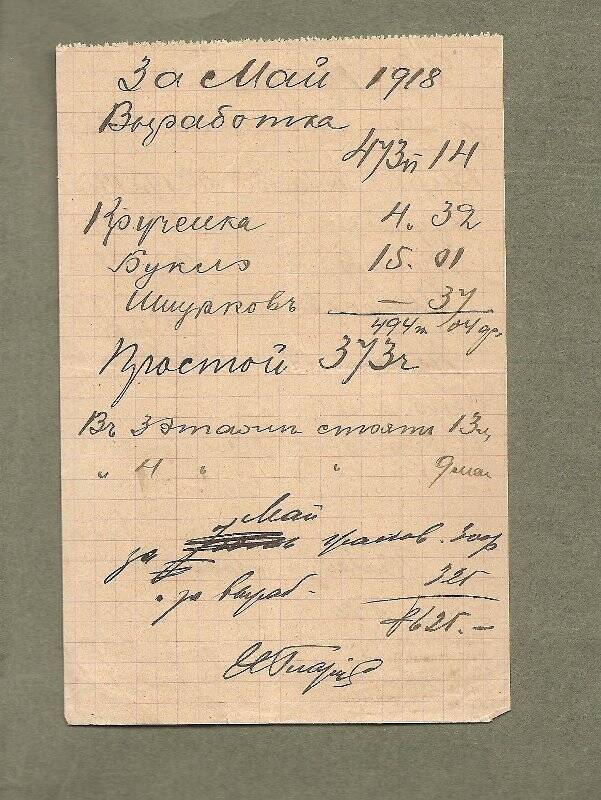 За Май 1918
Выработка
473п 14
Крученка 4. 32
Буклэ 15. 01
Шнурковъ — 37
494п 04 ф.
Простой 373ч
Въ 3 этажи стоятъ 13 м,
" 4 " " 9 маш
Май
за 300р
" за выраб. 325
р625.—